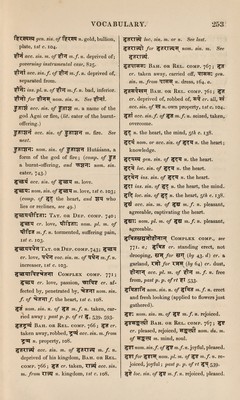 VOCABULARY. 253
हिरण्यस्य gen. sin. of हिरण्य n. gold, bullion,
plate, 1st c. 104.
हीनं acc. sin. m. of हीन m. f. n. deprived of;
governing instrumental case, 825.
हीनां acc. sin. f. of हीन m. f. n. deprived of,
separated from.
हीनैः ins. pl. n. of हीन m. f. n. bad, inferior.
हीनो for हीनस् nom. sin. m. See हीनां.
हुताशं acc. sin. of हुताश m. a name of the
god Agni or fire, (lit. eater of the burnt-
offering.)
हुताशनं acc. sin. of हुताशन m. fire. See
next.
हुताशनः nom. sin. of हुताशन m. Hutāśana, a
form of the god of fire; (comp. of हुत
a burnt-offering, and अशनः nom. sin.
eater, 743.)
हृच्छयं acc. sin. of हृच्छय m. love.
हृच्छयः nom. sin. of हृच्छय m. love, 1st c. 103;
(comp. of हृद् the heart, and शय who
lies or reclines, see 49.)
हृच्छयपीडिताः Tat. or Dep. comp. 740;
हृच्छय cr. love, पीडिताः nom. pl. m. of
पीडित m. f. n. tormented, suffering pain,
1st c. 103.
हृच्छयवर्धनं Tat. or Dep. comp. 743; हृच्छय
cr. love, वर्धनं acc. sin. m. of वर्धन m. f. n.
increaser, 1st c. 103.
हृच्छयाविष्टचेतना Complex comp. 771;
हृच्छय cr. love, passion, आविष्ट cr. af-
fected by, penetrated by, चेतना nom. sin.
f. of चेतना f. the heart, 1st c. 108.
हृतं nom. sin. n. of हृत m. f. n. taken, car-
ried away; past p. p. of हृ, 539. 593.
हृतद्रव्यं Bah. or Rel. comp. 766; हृत cr.
taken away, robbed, द्रव्यं acc. sin. m. from
द्रव्य n. property, 108.
हृतराज्यं acc. sin. m. of हृतराज्य m. f. n.
deprived of his kingdom, Bah. or Rel.
comp. 766; हृत cr. taken, राज्यं acc. sin.
m. from राज्य n. kingdom, 1st c. 108.
हृतराज्ये loc. sin. m. or n. See last.
हृतराज्यो for हृतराज्यस् nom. sin. m. See
हृतराज्यं.
हृतवाससः Bah. or Rel. comp. 767; हृत
cr. taken away, carried off, वाससः gen.
sin. m. from वासस् n. dress, 164. a.
हृतसर्वस्वं Bah. or Rel. comp. 761; हृत
cr. deprived of, robbed of, सर्व cr. all, स्वं
acc. sin. of स्व n. own property, 1st c. 104.
हृतां acc. sin. f. of हृत m. f. n. missed, taken,
overcome.
हृद् n. the heart, the mind, 5th c. 138.
हृदयं nom. or acc. sin. of हृदय n. the heart;
knowledge.
हृदयस्य gen. sin. of हृदय n. the heart.
हृदये loc. sin. of हृदय n. the heart.
हृदयेन ins. sin. of हृदय n. the heart.
हृदा ins. sin. of हृद् n. the heart, the mind.
हृदि loc. sin. of हृद् n. the heart, 5th c. 138.
हृद्यं acc. sin. m. of हृद्य m. f. n. pleasant,
agreeable, captivating the heart.
हृद्यः nom. sin. m. of हृद्य m. f. n. pleasant,
agreeable.
हृषितस्रग्रजोहीनान् Complex comp., see
771. a; हृषित cr. standing erect, not
drooping, स्रग् for स्रज् (by 43) cr. a
garland, रजो for रजस् (by 64) cr. dust,
हीनान् acc. pl. m. of हीन m. f. n. free
from, past p. p. of हा 533.
हृषितानि nom. sin. n. of हृषित m. f. n. erect
and fresh looking (applied to flowers just
gathered).
हृष्टः nom. sin. m. of हृष्ट m. f. n. rejoiced.
हृष्टसङ्कल्पो Bah. or Rel. comp. 767; हृष्ट
cr. pleased, rejoiced, सङ्कल्पो nom. sin. m.
of सङ्कल्प m. mind, soul.
हृष्टा nom. sin. f. of हृष्ट m. f. n. joyful, pleased.
हृष्टा for हृष्टास् nom. pl. m. of हृष्ट m. f. n. re-
joiced, joyful; past p. p. of हृष् 539.
हृष्टे loc. sin. of हृष्ट m. f. n. rejoiced, pleased.